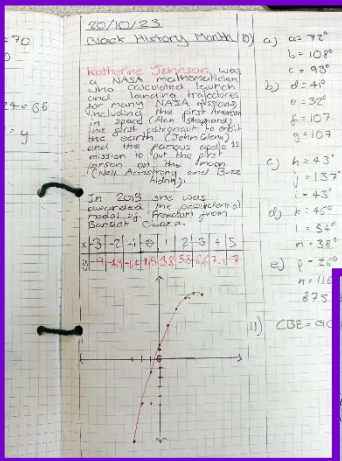 = 70
= 66
= y
20/10/23
Black History Month
Katherine Johnson was
a NASA mathematician
who calculated launch
and landing trajectories
for many NASA missions,
including the first American
in space (Alan
the first astronaut to orbit
the earth (John Glenn)
and the famous apollo 11
mission to put the first
person on the moon
(Neil Armstrong and Buzz
In 2015 she was
awarded the
medal of Freedom from
Barack Obama.
x -3 -2 -1 0 1 2 3 4 5
10) a) a = 72°
b = 108°
c = 93°
b) d = 41°
e = 32°
f = 107
g = 107
c) h = 43°
y = 137°
i = 43°
d) k = 46°
l = 54°
m = 38°
e)
11) CBE = 90